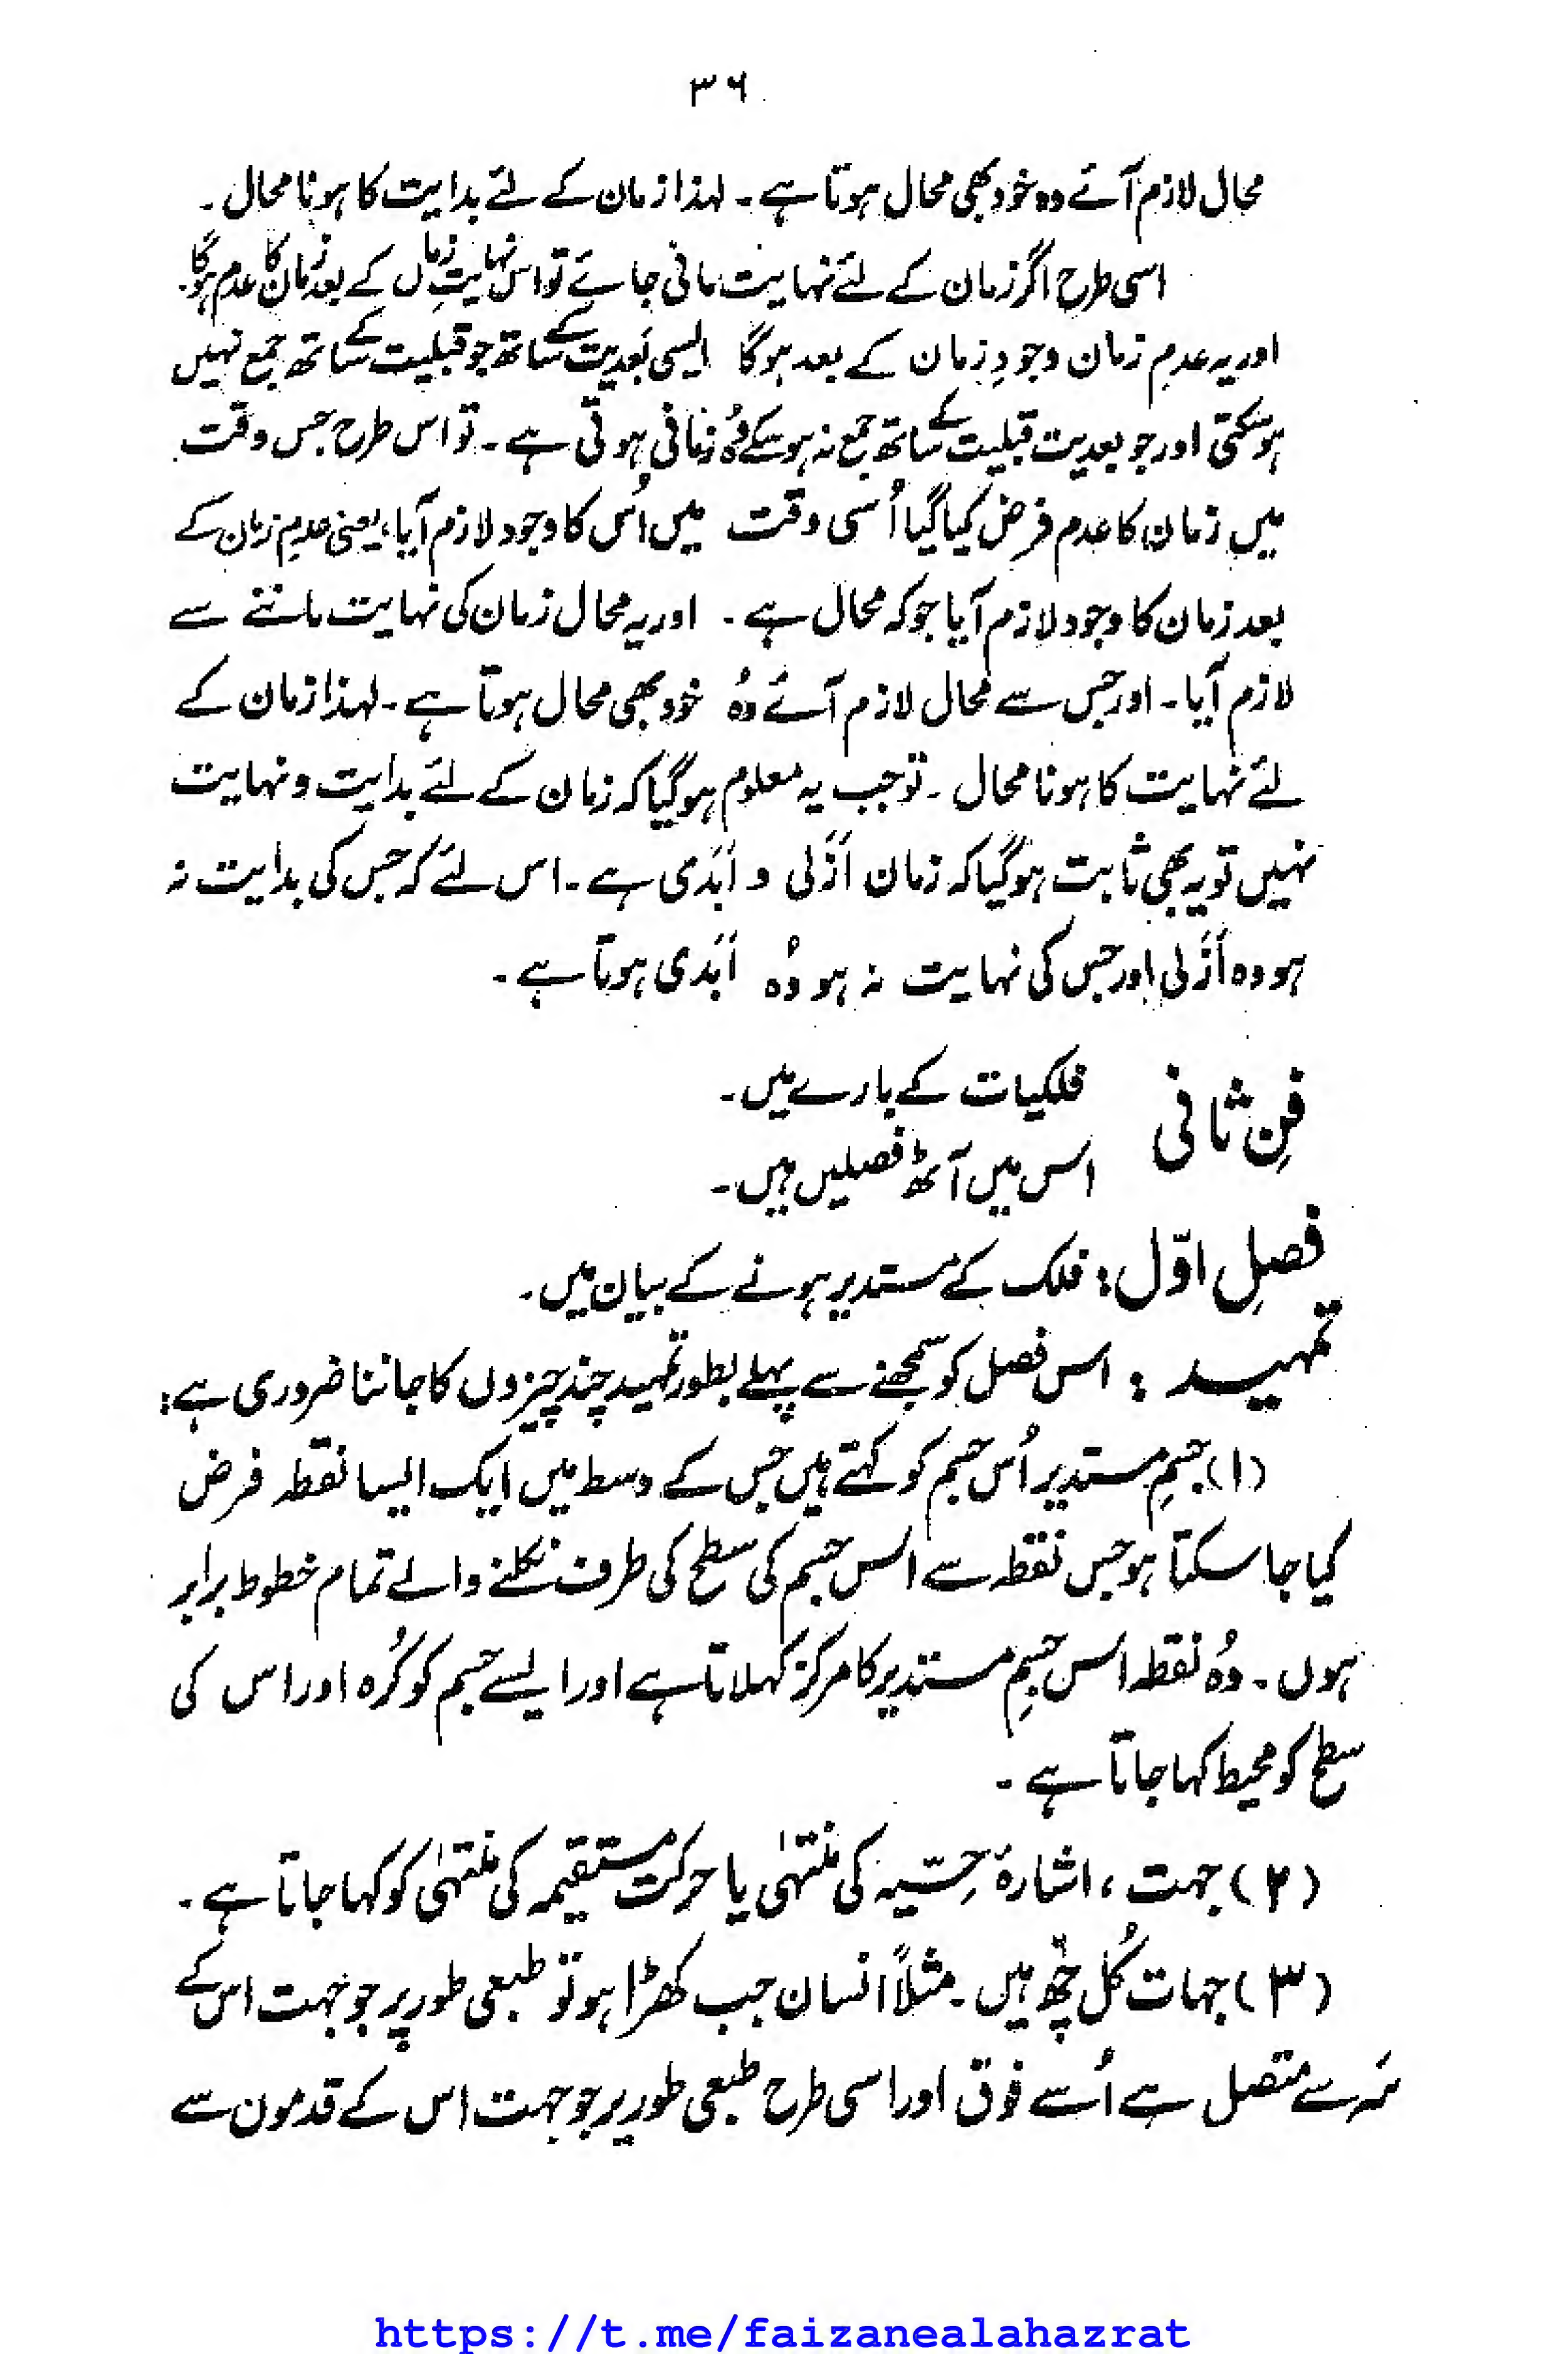 ۳۶
محال لازم آئے وہ خود بھی محال ہوتا ہے۔ لہذا زمان کے لئے بدایت کا ہونا محال۔
اسی طرح اگر زمان کے لئے نہایت مانی جائے تو اس نہایتِ زماں کے بعد زمان کا عدم ہوگا۔
اور یہ عدمِ زمان وجودِ زمان کے بعد ہوگا ایسی بَعدیت کے ساتھ جو قبلیت کے ساتھ جمع نہیں
ہوسکتی اور جو بعدیت قبلیت کے ساتھ جمع نہ ہوسکے وُہ زمانی ہوتی ہے۔ تو اس طرح جس وقت
میں زمان کا عدم فرض کیا گیا اُسی وقت میں اُس کا وجود لازم آیا، یعنی عدمِ زمان کے
بعد زمان کا وجود لازم آیا جو کہ محال ہے۔ اور یہ محال زمان کی نہایت ماننے سے
لازم آیا۔ اور جس سے محال لازم آئے وُہ خود بھی محال ہوتا ہے۔ لہذا زمان کے
لئے نہایت کا ہونا محال۔ تو جب یہ معلوم ہوگیا کہ زمان کے لئے بدایت و نہایت
نہیں تو یہ بھی ثابت ہوگیا کہ زمان اَزَلی و اَبَدی ہے۔ اس لئے کہ جس کی بدایت نہ
ہو وہ اَزَلی اور جس کی نہایت نہ ہو وُہ اَبَدی ہوتا ہے۔
فنِ ثانی فلکیات کے بارے میں۔
اس میں آٹھ فصلیں ہیں۔
فصلِ اوّل: فلک کے مستدیر ہونے کے بیان میں۔
تمہید: اس فصل کو سمجھنے سے پہلے بطورِ تمہید چند چیزوں کا جاننا ضروری ہے:
(۱) جسمِ مستدیر اُس جسم کو کہتے ہیں جس کے وسط میں ایک ایسا نقطہ فرض
کیا جاسکتا ہو جس نقطہ سے اس جسم کی سطح کی طرف نکلنے والے تمام خطوط برابر
ہوں۔ وُہ نقطہ اس جسمِ مستدیر کا مرکز کہلاتا ہے اور ایسے جسم کو کُرہ اور اس کی
سطح کو محیط کہا جاتا ہے۔
(۲) جہت، اشارۂ حِسّیہ کی منتہٰی یا حرکت مستقیمہ کی منتہٰی کو کہا جاتا ہے۔
(۳) جہات کُل چھ ہیں۔ مثلاً انسان جب کھڑا ہو تو طبعی طور پر جو جہت اس کے
سَر سے متصل ہے اُسے فوق اور اسی طرح طبعی طور پر جو جہت اس کے قدمون سے
https://t.me/faizanealahazrat